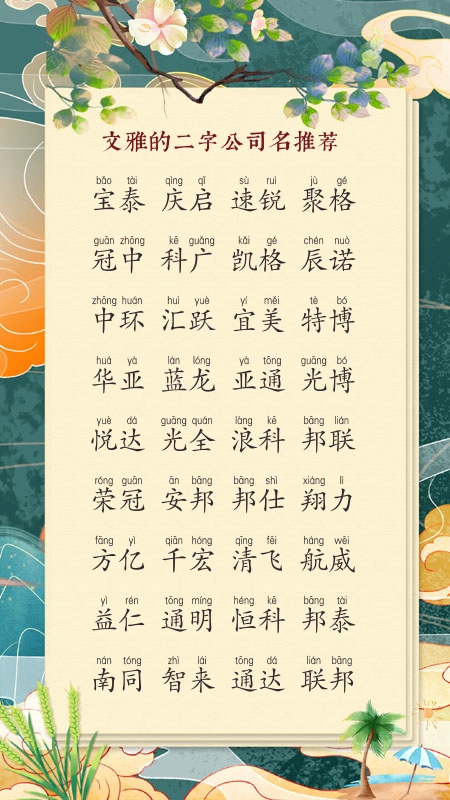 文雅的二字公司名推荐
bǎo tài qìng qǐ sù ruì jù gé
宝泰 庆启 速锐 聚格
guān zhōng kē guǎng kǎi gé chén nuò
冠中 科广 凯格 辰诺
zhōng huán huì yuè yí měi tè bó
中环 汇跃 宜美 特博
huá yà lán lóng yà tōng guāng bó
华亚 蓝龙 亚通 光博
yuè dá guāng quán làng kē bāng lián
悦达 光全 浪科 邦联
róng guān ān bāng bāng shì xiáng lì
荣冠 安邦 邦仕 翔力
fāng yì qiān hóng qīng fēi háng wēi
方亿 千宏 清飞 航威
yì rén tōng míng héng kē bāng tài
益仁 通明 恒科 邦泰
nán tóng zhì lái tōng dá lián bāng
南同 智来 通达 联邦